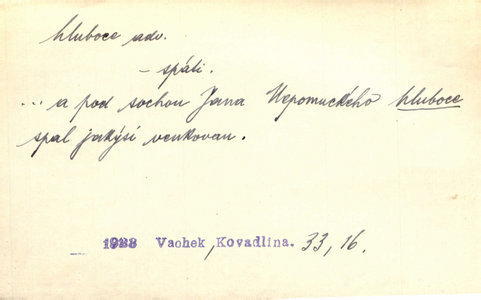 hluboce adv.
– spáti.
... a pod sochou Jana Nepomuckého hluboce
spal jakýsi venkovan.
Vachek, Kovadlina. 33, 16.